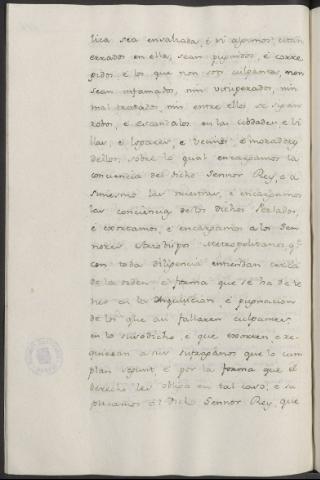 lica sea ensalzada, é si algunos estan
errados en ella, sean punidos, é corre
gidos é los que non son culpantes, non
sean infamados, nin vituperados, nin
mal tratados, nin entre ellos se siguan
robos, é escandalos en las cibdades e vi
llas, e logares, e vecinos, é moradores
dellos; sobre lo qual encargamos la
conciencia del dicho Sennor Rey, e a
simesmo las nuestras, é encargamos
las conciencias de los dichos Perlados,
é exortamos, é encargamos a los Sen
nores Arzobispos Metropolitanos, qe.
con toda diligencia entiendan cerca
de la orden é forma que se ha de te
ner en la Inquisicion, é punicion
de los que asi fallaren culpantes
en lo susodicho, é que exorten e re-
quieran a sus sufraganos que lo cum
plan segunt, é por la forma que el
derecho les obliga en tal caso, é su
plicamos al dicho Sennor Rey, que